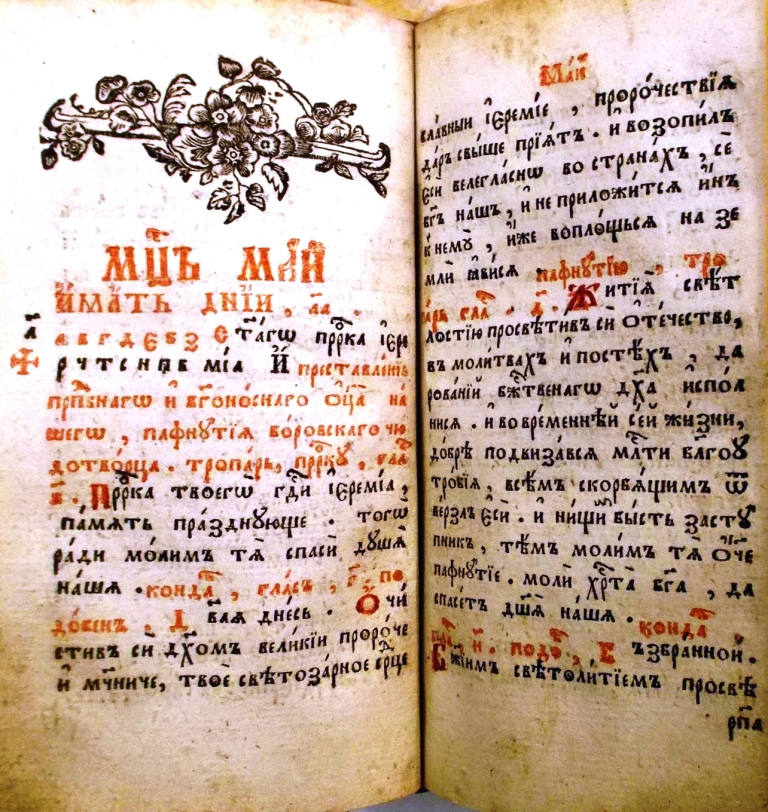 мц҃ъ маі́й
и҆́мать дні́и, л҃а.
а҃
а в г д є ѕ з ст҃а́гѡ прⷪ҇рка і҆ере
р ч т с н п в мі́а И҆ преставле́нїе
прпⷣбнагѡ и҆ бг҃оно́снаго ѻ҆ц҃а̀ на́
шегѡ, пафну́тїѧ боровскаго чю
дотво́рца. тропа́рь, прⷪ҇рку, гла́съ
в҃. Прⷪ҇рка твоегѡ̀ гдⷭ҇и і҆еремі́а,
па́мѧть пра́зднующе. тогѡ̀
ра́ди мо́лимъ тѧ̀ спасѝ ду́шѧ
на́шѧ. конда́къ, гла́съ, г҃, по
до́бенъ, Д҃ва́ѧ дне́сь. Ѻ҆чи́
стивъ сѝ дх҃омъ вели́кїи прⷪ҇ро́че
и҆ мч҃ниче, твоѐ свѣтоза́рное срⷣце
Ма́їй
сла́вныи і҆еремі́е, прⷪ҇ро́чествїѧ
да́ръ свы́ше прїѧ́тъ. и҆ возопи́лъ
є҆сѝ велегла́снѡ во страна́хъ, сѐ
бг҃ъ на́шъ, и҆ не приложи́тсѧ и҆́нъ
к нему̀, и҆́же вопло́щьсѧ на зе
млѝ ꙗ҆ви́сѧ пафну́тїю, тро
па́рь гла́съ. д҃. Житїѧ̀ свѣ́т
лостїю просвѣти́въ сѝ ѻ҆те́чество,
въ моли́твахъ и҆ посте́хъ, да
рова́нїй бж҃твенагѡ дх҃а и҆спо́л
нисѧ. и҆ во вре́меннѣй се́й жи́зни,
до́брѣ подвиза́всѧ мл҃ти бл҃гоу
тро́бїѧ, всѣ́мъ скорбѧ́щимъ ѿ
ве́рзлъ є҆сѝ. и҆ ни́щимъ бы́сть засту́
пникъ, тѣ́мъ мо́лимъ тѧ̀ ѻ҆́ч҃е
пафну́тїе. молѝ хрⷭ҇та̀ бг҃а, да
спасе́тъ дш҃ѧ на́шѧ. конда́къ,
гла́съ, и҃. подо́бенъ, Въ́збранной.
Бж҃їимъ свѣтоли́тїемъ просвѣ
рпа